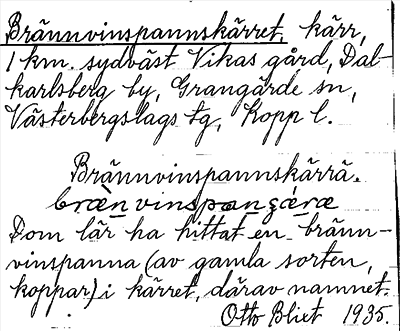 Brännvinspannskärret, kärr,
1 km. sydväst Vikas gård, Dal-
karlsberg by, Grangärde sn,
Västerbergslags tg, Kopp l.
Brännvinspannskärrä.
bræ̀nvinspangǽræ
Dom lär ha hittat en bränn-
vinspanna (av gamla sorten,
koppar) i kärret, därav namnet.
Otto Blixt 1935.